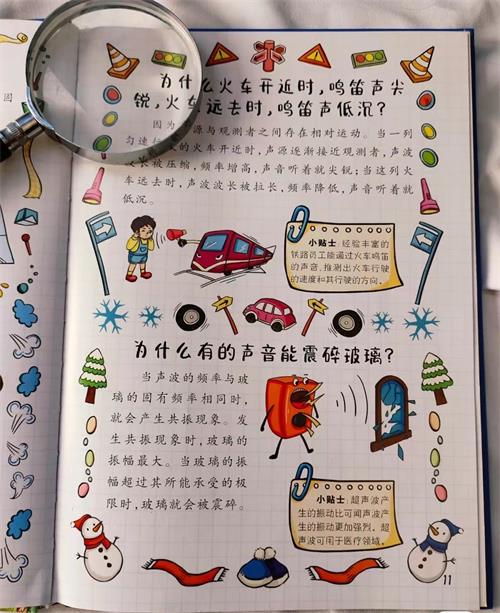 为什么火车开近时，鸣笛声尖
锐，火车远去时，鸣笛声低沉？
因为声源与观测者之间存在相对运动。当一列
匀速行驶的火车开近时，声源逐渐接近观测者，声波
波长被压缩，频率增高，声音听着就尖锐；当这列火
车远去时，声波波长被拉长，频率降低，声音听着就
低沉。
小贴士：经验丰富的
铁路员工能通过火车鸣笛
的声音，推测出火车行驶
的速度和其行驶的方向。
为什么有的声音能震碎玻璃？
当声波的频率与玻
璃的固有频率相同时，
就会产生共振现象。发
生共振现象时，玻璃的
振幅最大。当玻璃的振
幅超过其所能承受的极
限时，玻璃就会被震碎。
小贴士：超声波产
生的振动比可闻声波产
生的振动更加强烈。超
声波可用于医疗领域。
11